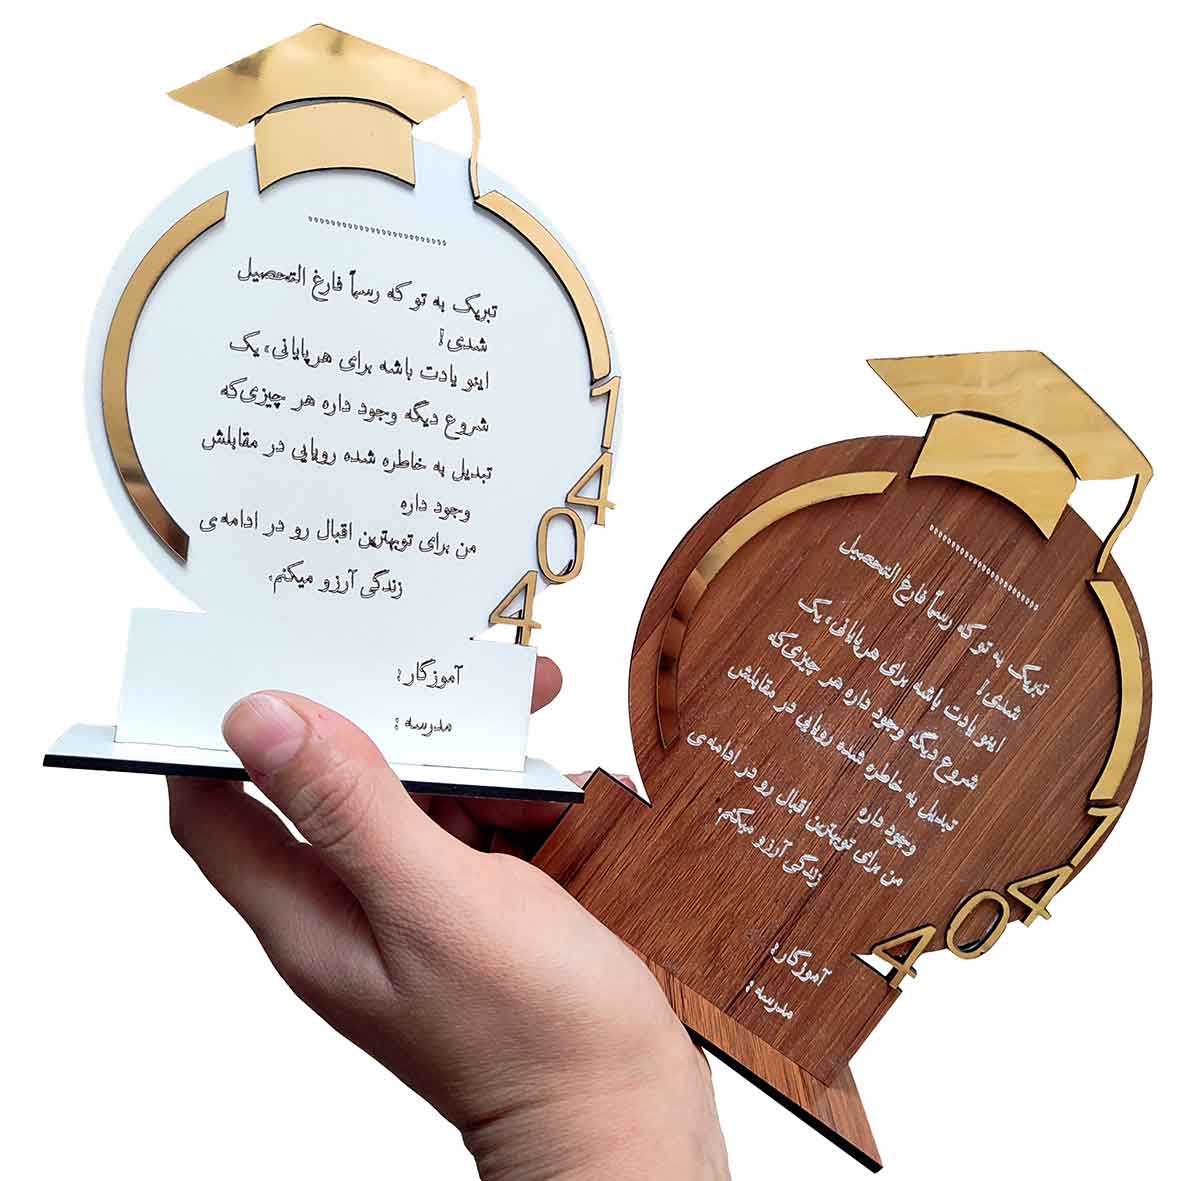 تبریک به تو که رسماً فارغ التحصیل
شدی!
اینو یادت باشه برای هرپایانی، یک
شروع دیگه وجود داره هر چیزی‌که
تبدیل به خاطره شده رویایی در مقابلش
وجود داره
من برای توبهترین اقبال رو در ادامه‌ی
زندگی آرزو میکنم.
1404
آموزگار:
مدرسه:
تبریک به تو که رسماً فارغ التحصیل
شدی!
اینو یادت باشه برای هرپایانی، یک
شروع دیگه وجود داره هر چیزی‌که
تبدیل به خاطره شده رویایی در مقابلش
وجود داره
من برای توبهترین اقبال رو در ادامه‌ی
زندگی آرزو میکنم.
1404
آموزگار:
مدرسه: